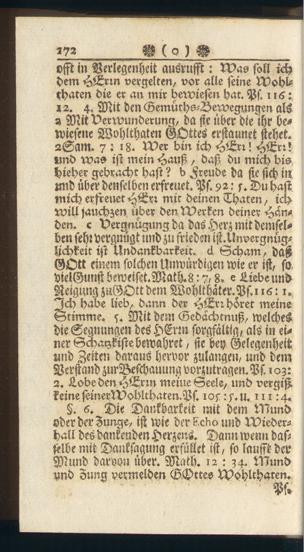 172 ( o )
offt in Verlegenheit ausrufft : Was soll ich
dem HErrn vergelten, vor alle seine Wohl-
thaten die er an mir bewiesen hat. Ps. 116 :
12. 4. Mit den Gemüths-Bewegungen als
a Mit Verwunderung, da sie über die ihr be-
wiesene Wohlthaten GOttes erstaunet stehet.
2 Sam. 7 : 18. Wer bin ich HErr! HErr!
und was ist mein Hauß, daß du mich bis
hieher gebracht hast? b Freude da sie sich in
und über denselben erfreuet. Ps. 92 : 5. Du hast
mich erfreuet HErr mit deinen Thaten, ich
will jauchzen über den Wercken deiner Hän-
den. c Vergnügung da das Herz mit demsel-
ben sehr vergnügt und zu frieden ist. Unvergnüg-
lichkeit ist Undankbarkeit. d Scham, daß
GOtt einem solchen Unwürdigen wie er ist, so
viel Gunst beweiset. Math. 8 : 7, 8. e Liebe und
Neigung zu GOtt dem Wohlthäter. Ps. 116 : 1.
Ich habe lieb, dann der HErr höret meine
Stimme. 5. Mit dem Gedächtnuß, welches
die Segnungen des HErrn sorgfältig, als in ei-
ner Schatzkiste bewahret, sie bey Gelegenheit
und Zeiten daraus hervor zulangen, und dem
Verstand zur Beschauung vorzutragen. Ps. 103 :
2. Lobe den HErrn meine Seele, und vergiß
keine seiner Wohlthaten. Ps. 105 : 5. u. 111 : 4.
§. 6. Die Dankbarkeit mit dem Mund
oder der Zunge, ist wie der Echo und Wieder-
hall des dankenden Herzens. Dann wenn das-
selbe mit Danksagung erfüllet ist, so laufft der
Mund darvon über. Math. 12 : 34. Mund
und Zung vermelden GOttes Wohlthaten.
Ps.